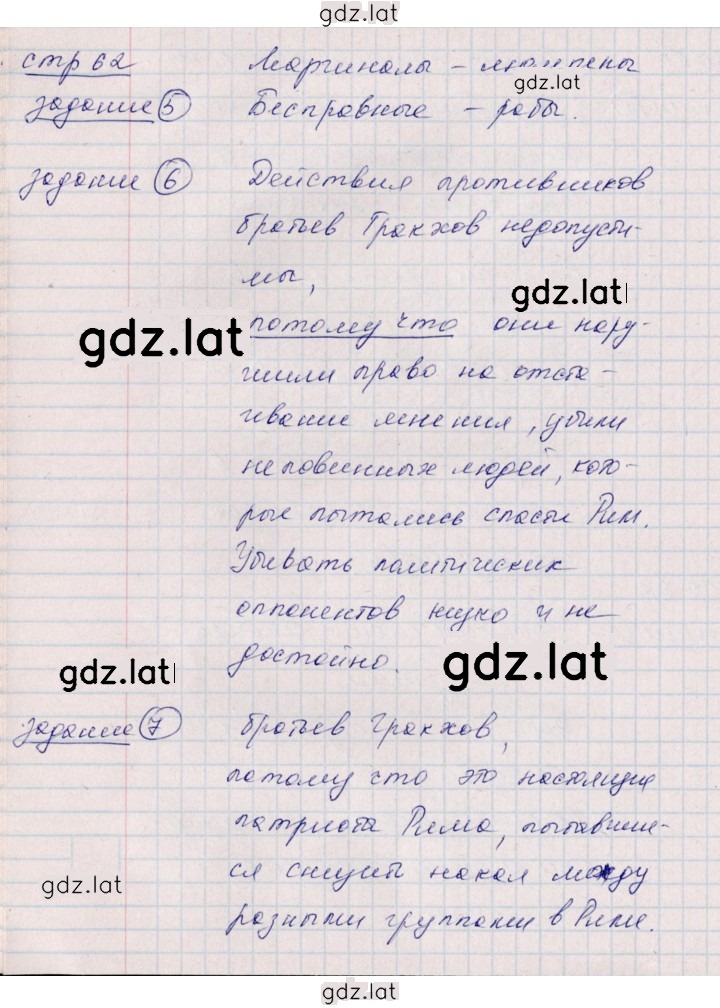 gdz.lat
стр 62 Маргиналы –
gdz.lat
задание 5 Бесправные – рабы.
задание 6 Действия противников
братьев Гракхов недопусти-
мы,
gdz.lat
gdz.lat
потому что они нару-
шили право на отста-
ивание мнения, убили
неповинных людей, кото-
рые пытались спасти Рим.
Убивать политических
оппонентов низко и не
достойно.
gdz.lat
gdz.lat
задание 7 братьев Гракхов,
потому что это настоящие
патриота Рима, пытавшие-
ся снизить накал между
gdz.lat
разными группами в Риме.
gdz.lat